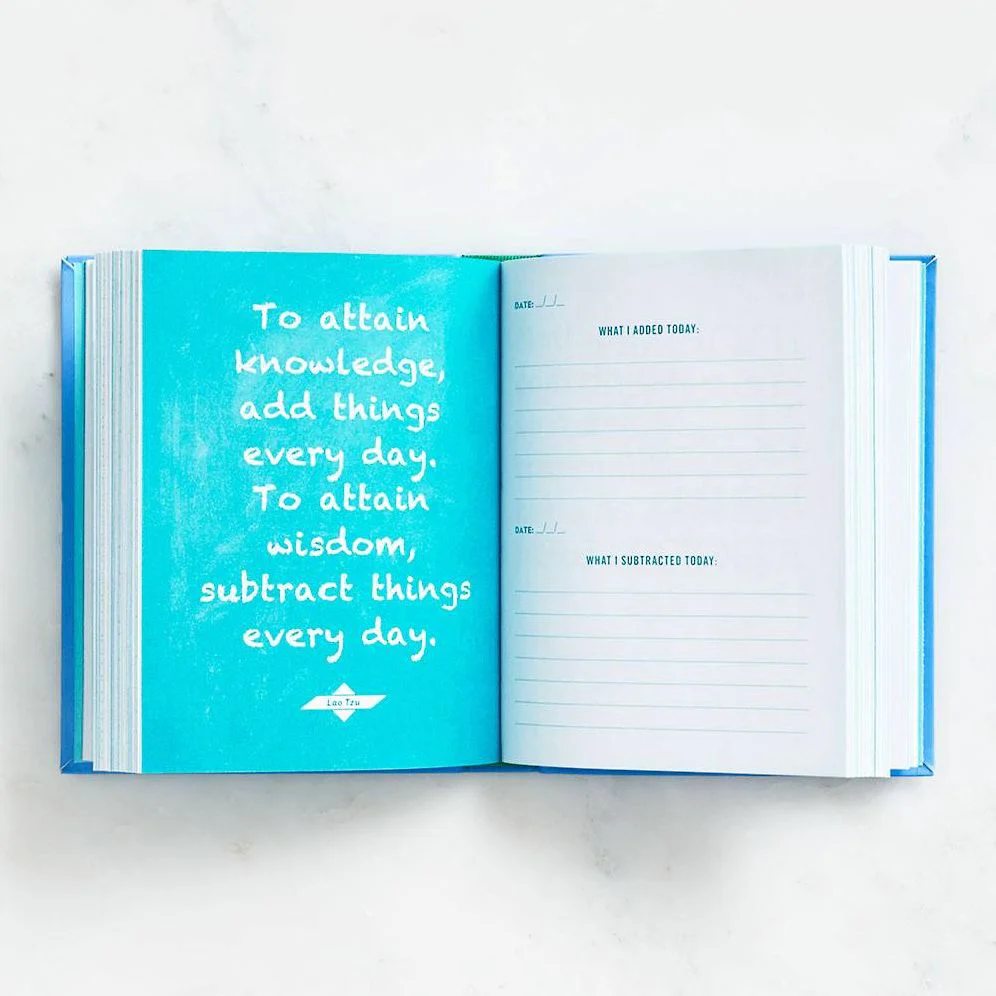 To attain
knowledge,
add things
every day.
To attain
wisdom,
subtract things
every day.
Lao Tzu
DATE: _/_/_
WHAT I ADDED TODAY:
DATE: _/_/_
WHAT I SUBTRACTED TODAY: